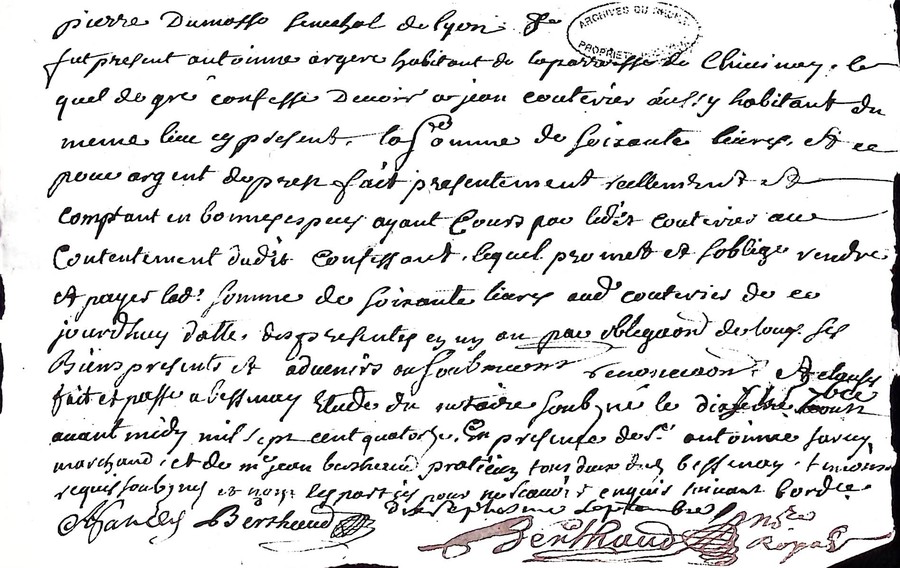 pierre Dumasso senechal de lyon
ARCHIVES DU
PROPRIETE
fut present antoinne argere habitant de laparroisse de Chivinay, le
quel de gré confesse Devoir a jean couterier aussy habitant du
meme lieu cy present, la somme de soixante livres, et ce
pour argent de prest fait presentement reellement et
comptant en bonnes especes ayant Cours par ledit couterier au
Contentement dudit Confessant, lequel promet et soblige rendre
et payer lade somme de soixante livres aud couterier de ce
jourdhuy datte des presentes en un an par obligaon de tous ses
Biens presents et advenirs ou soubmissions renonciaons et clauses
fait et passé a bessenay Etude du notaire soubzné le
avant midy mil sept cent quatorze, En presence de sr antoinne
marchand, et de me jean berthaud praticien tous deux dud bessenay, temoins
requis soubznes et non les parties pour ne scavoir enquis suivant lordce
dix septiesme septembre
Berthaud
Berthaud nore
Royal